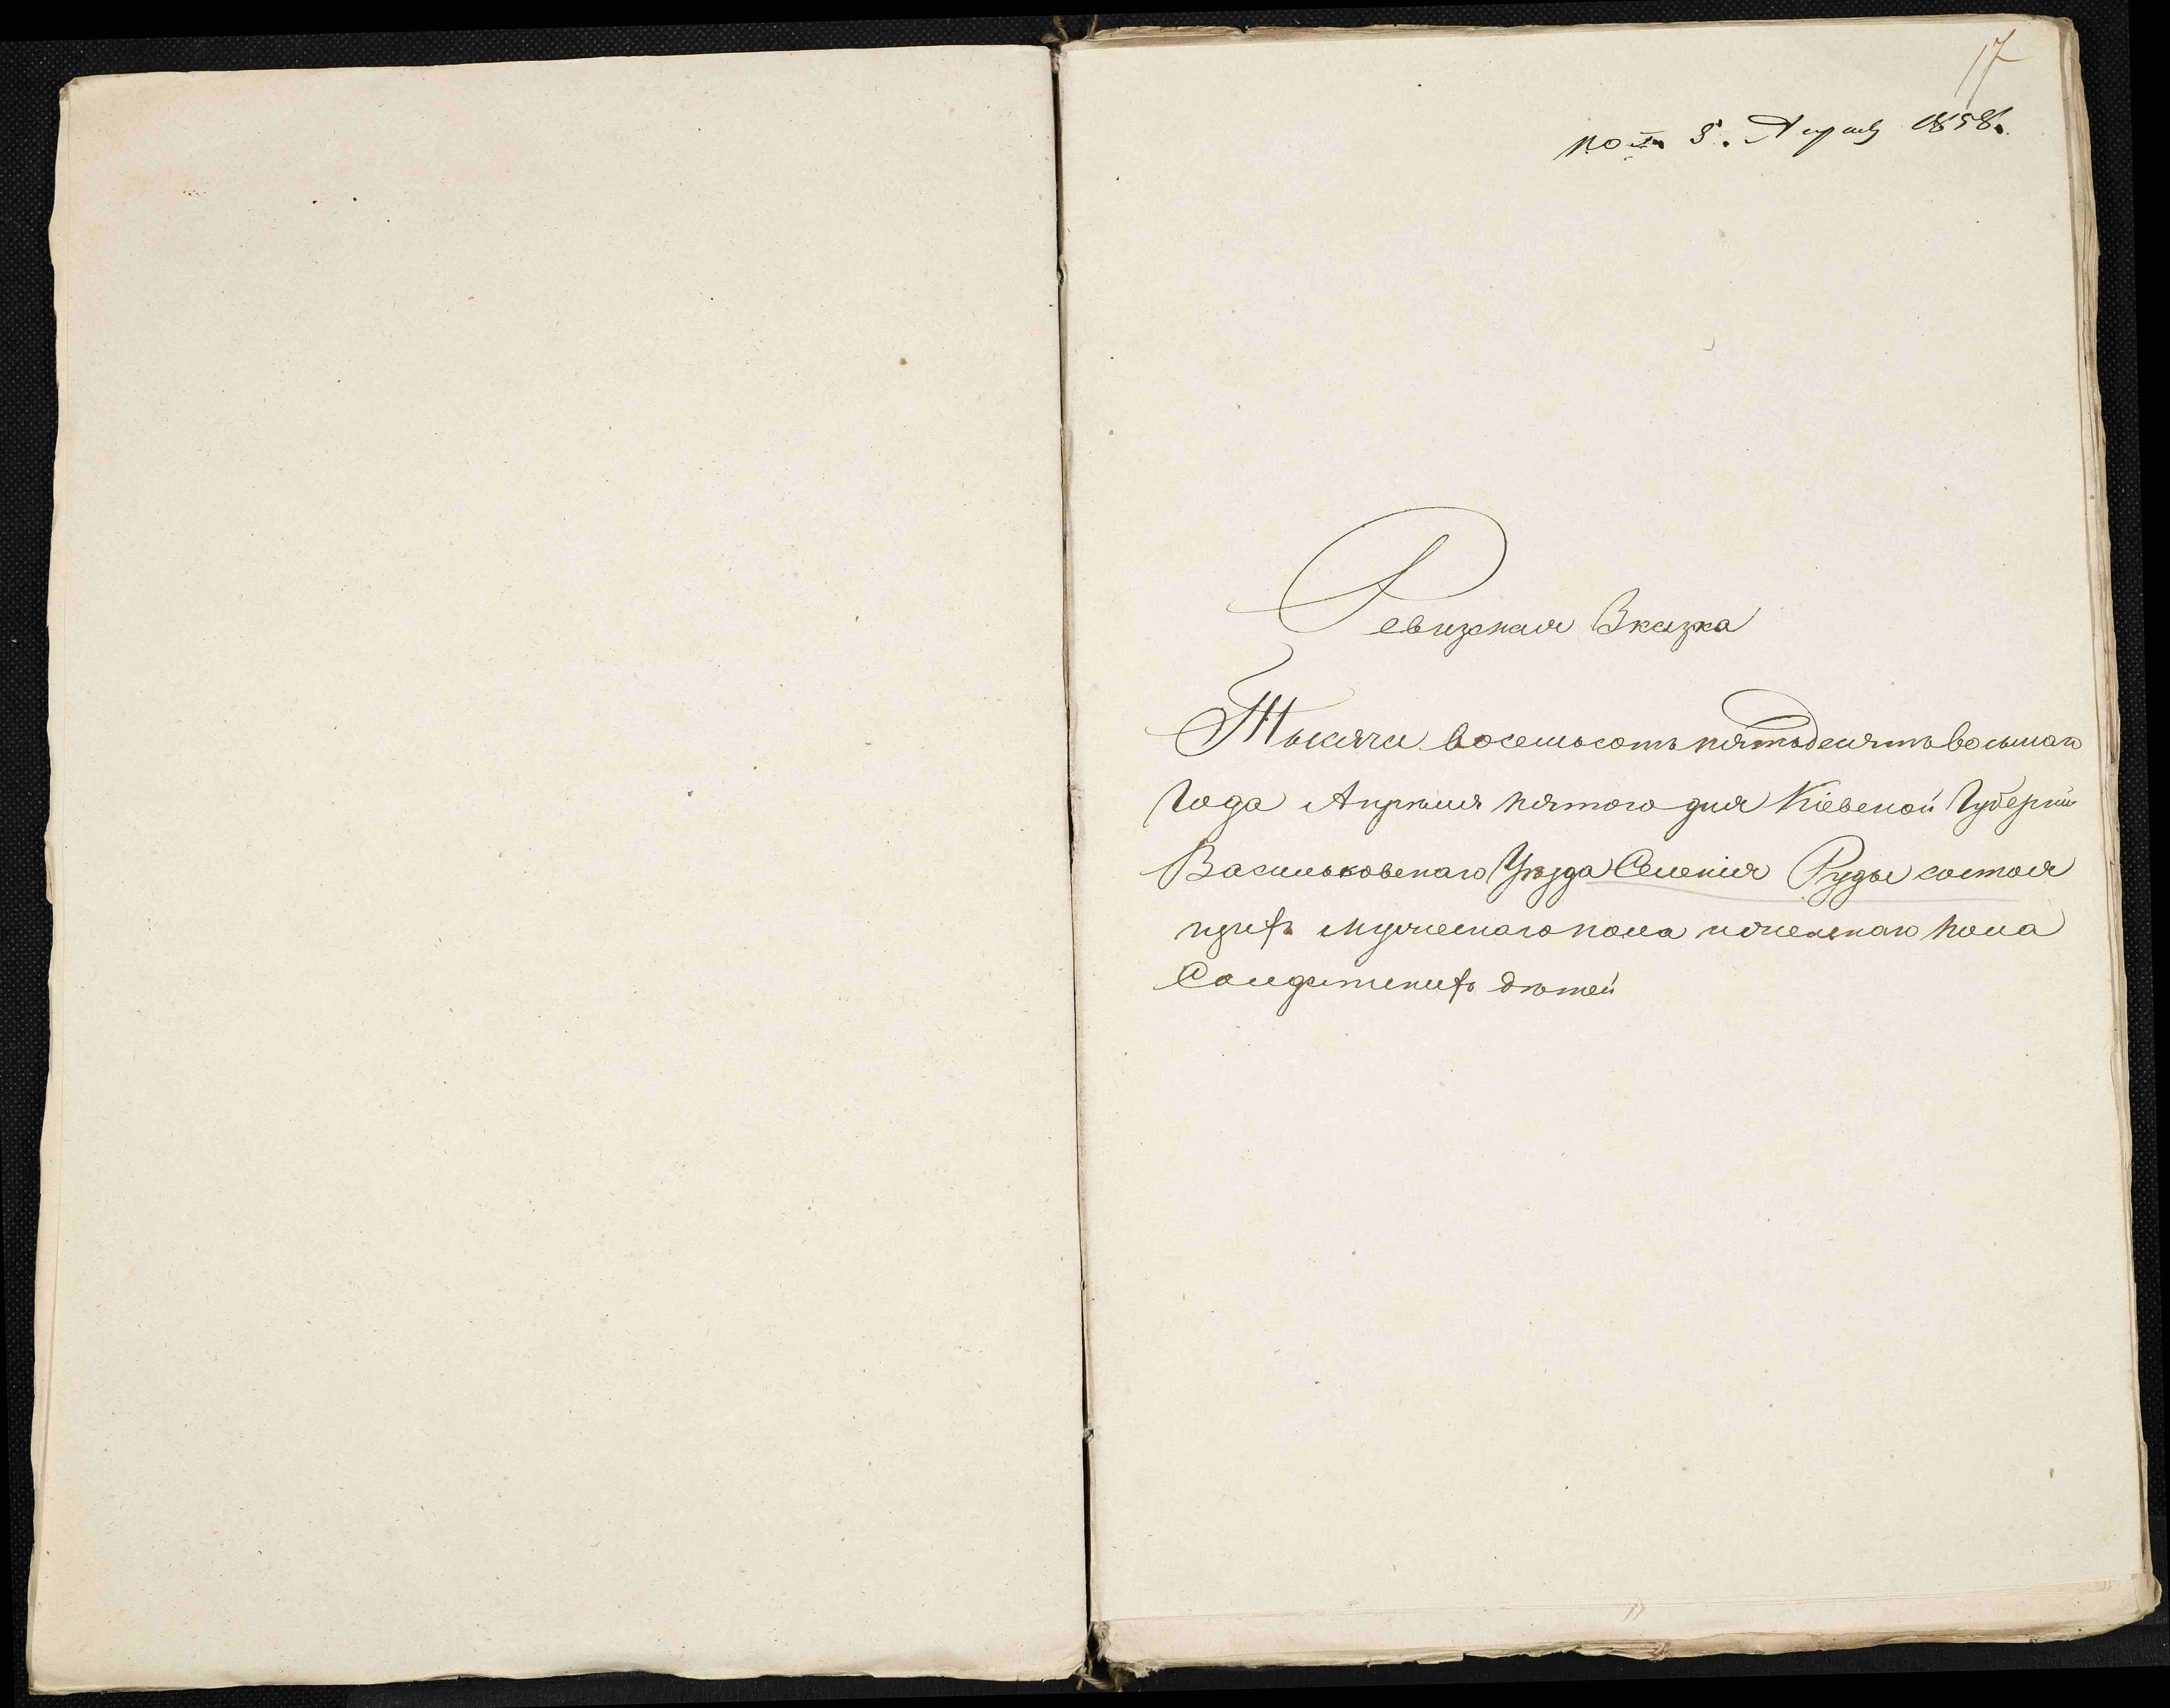 17
5. Апреля 1858.
Ревизкая Зказка
Тысяча восемьсотъ пятьдесятъ восьмаго
Года Апреля пятого дня Кіевской Губерніи
Васильковскаго Уѣзда Селенія Руды состоя
щихъ мужескаго пола и женскаго пола
Солдатскихъ дѣтей